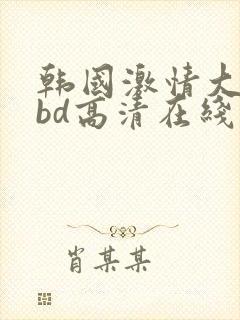 韩国激情大
bd高清在线
肖某某